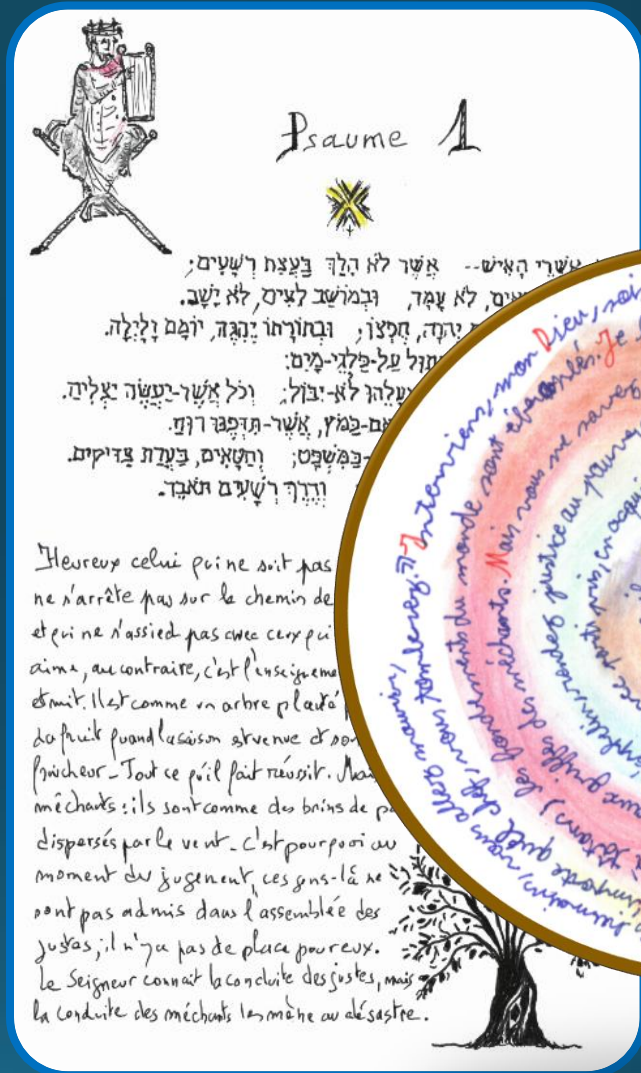 Psaume 1
אַשְׁרֵי הָאִישׁ-- אֲשֶׁר לֹא הָלַךְ בַּעֲצַת רְשָׁעִים;
לֹא עָמָד, וּבְמוֹשַׁב לֵצִים, לֹא יָשָׁב.
יְהוָה, חֶפְצוֹ; וּבְתוֹרָתוֹ יֶהְגֶּה, יוֹמָם וָלָיְלָה.
עַל-פַּלְגֵי-מָיִם:
לֹא-יִבּוֹל; וְכֹל אֲשֶׁר-יַעֲשֶׂה יַצְלִיחַ.
כַּמֹּץ, אֲשֶׁר-תִּדְּפֶנּוּ רוּחַ.
בַּמִּשְׁפָּט; וְחַטָּאִים, בַּעֲדַת צַדִּיקִים.
וְדֶרֶךְ רְשָׁעִים תֹּאבֵד.
Heureux celui qui ne suit pas
ne s'arrête pas sur le chemin de
et qui ne s'assied pas avec ceux qui
aime, au contraire, c'est l'enseigneme
et nuit. Il est comme un arbre planté
du fruit quand la saison est venue et son
fraîcheur - Tout ce qu'il fait réussit. Mais
méchants : ils sont comme des brins de pa
dispersés par le vent. C'est pourquoi au
moment du jugement, ces gens-là ne
sont pas admis dans l'assemblée des
justes, il n'y a pas de place pour eux.
Le Seigneur connaît la conduite des justes, mais
la conduite des méchants les mène au désastre.
humains, vous allez mourir,
chef, vous tomberez. Interviens, mon Dieu, soi
les fondements du monde sont ébranlés. Je
aux griffes des méchants. Mais vous ne savez
rendez justice au pauvre,